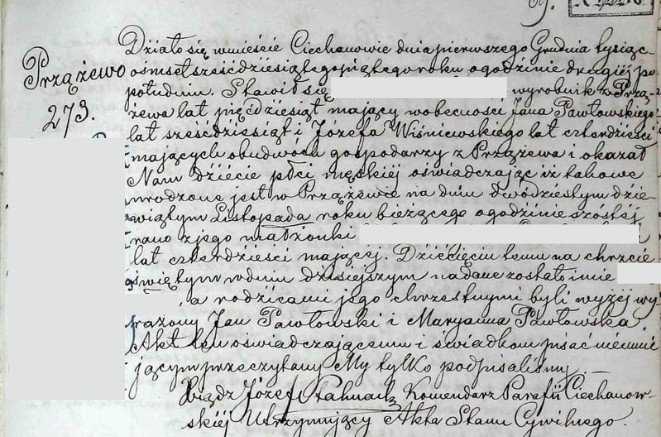 9.
Działo się w mieście Ciechanowie dnia pierwszego Grudnia tysiąc
Przążewo ośmset sześćdziesiątego piątego roku o godzinie drugiej po
południu. Stawił się wyrobnik z Przą-
273. żewa lat pięćdziesiąt mający w obecności Jana Pawłowskiego
lat sześćdziesiąt i Józefa Wiśniewskiego lat czterdzieści
mających obudwóch gospodarzy z Przążewa i okazał
Nam dziécie płci męskiej oświadczając iż takowe
urodzone jest w Przążewie na dniu dwudziestym dzie-
wiątym Listopada roku bieżącego o godzinie szóstéj
rano z jego małżonki
lat czterdzieści mającéj. Dziécięciu temu na chrzcie
świętym w dniu dzisiejszym nadane zostało imie
, a rodzicami jego chrzestnymi byli wyżéj wy-
rażony Jan Pawłowski i Maryanna Pawłowska
Akt ten oświadczającemu i świadkom pisać nieumie
jącym przeczytany My tylko podpisaliśmy.—
Ksiądz Józef Komendarz Parafii Ciechanow-
skiéj Utrzymujący Akta Stanu Cywilnego.